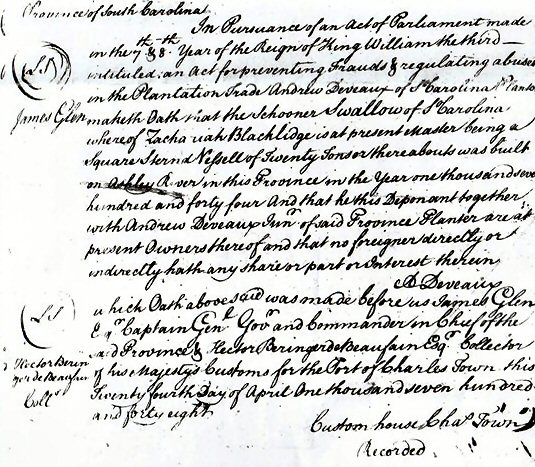 Province of South Carolina
In Pursuance of an Act of Parliament made
in the 7th & 8th Year of the Reign of King William the third
intituled, an Act for preventing Frauds & regulating abuses
in the Plantation Trade Andrew Deveaux of So Carolina Planter
maketh Oath that the Schooner Swallow of So Carolina
whereof Zachariah Blacklidge is at present Master being a
Square Sternd Vessell of Twenty Tons or thereabouts was built
on Ashley River in this Province in the Year one thousand seven
hundred and forty four And that he this Deponant together
with Andrew Deveaux Junr of said Province Planter are at
present Owners thereof and that no foreigner directly or
indirectly hath any share or part or Interest therein
A Deveaux
which Oath abovesaid was made before us James Glen
Esqr Captain Genl Govr and Commander in Chief of the
said Province & Hector Beringer de Beaufain Esqr Collector
of his Majestys Customs for the Port of Charles Town this
Twenty fourth Day of April One thousand seven hundred
and forty eight
Custom house Chas Town
Recorded
LS
James Glen
LS
Hector Berin
ger de Beaufain
Colls